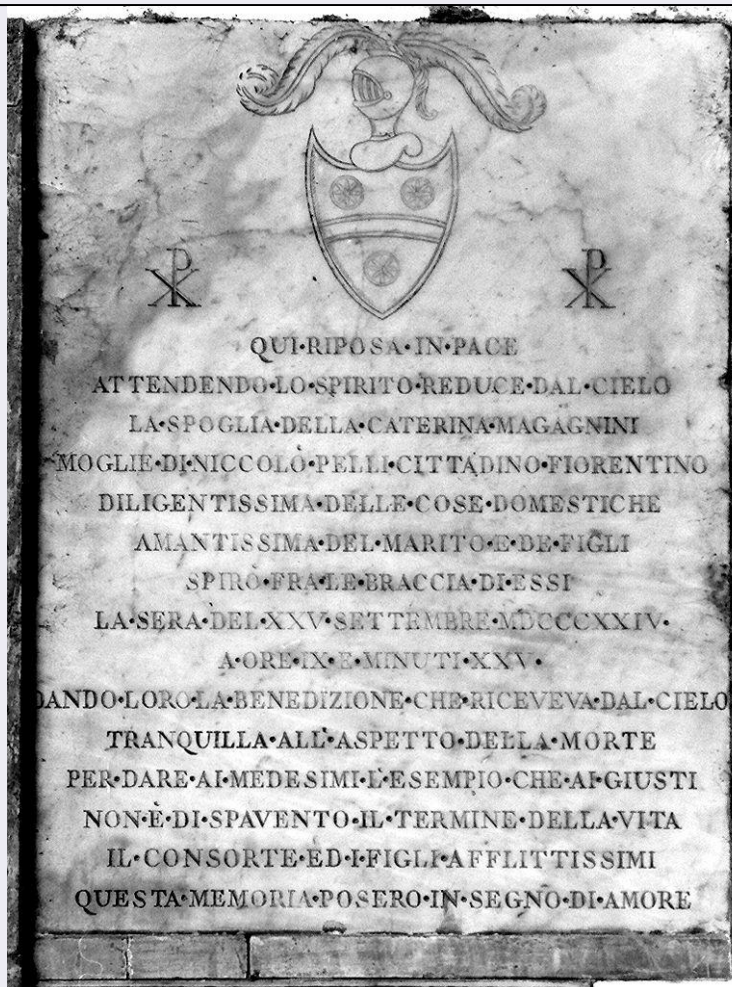 QUI·RIPOSA·IN·PACE
ATTENDENDO·LO·SPIRITO·REDUCE·DAL·CIELO
LA·SPOGLIA·DELLA·CATERINA·MAGAGNINI
MOGLIE·DI·NICCOLÒ·PELLI·CITTADINO·FIORENTINO
DILIGENTISSIMA·DELLE·COSE·DOMESTICHE
AMANTISSIMA·DEL·MARITO·E·DE·FIGLI
SPIRÒ·FRA·LE·BRACCIA·DI·ESSI
LA·SERA·DEL·XXV·SETTEMBRE·MDCCCXXIV·
A·ORE·IX·E·MINUTI·XXV·
DANDO·LORO·LA·BENEDIZIONE·CHE·RICEVEVA·DAL·CIELO
TRANQUILLA·ALL'·ASPETTO·DELLA·MORTE
PER·DARE·AI·MEDESIMI·L'ESEMPIO·CHE·AI·GIUSTI
NON·È·DI·SPAVENTO·IL·TERMINE·DELLA·VITA
IL·CONSORTE·ED·I·FIGLI·AFFLITTISSIMI
QUESTA·MEMORIA·POSERO·IN·SEGNO·DI·AMORE